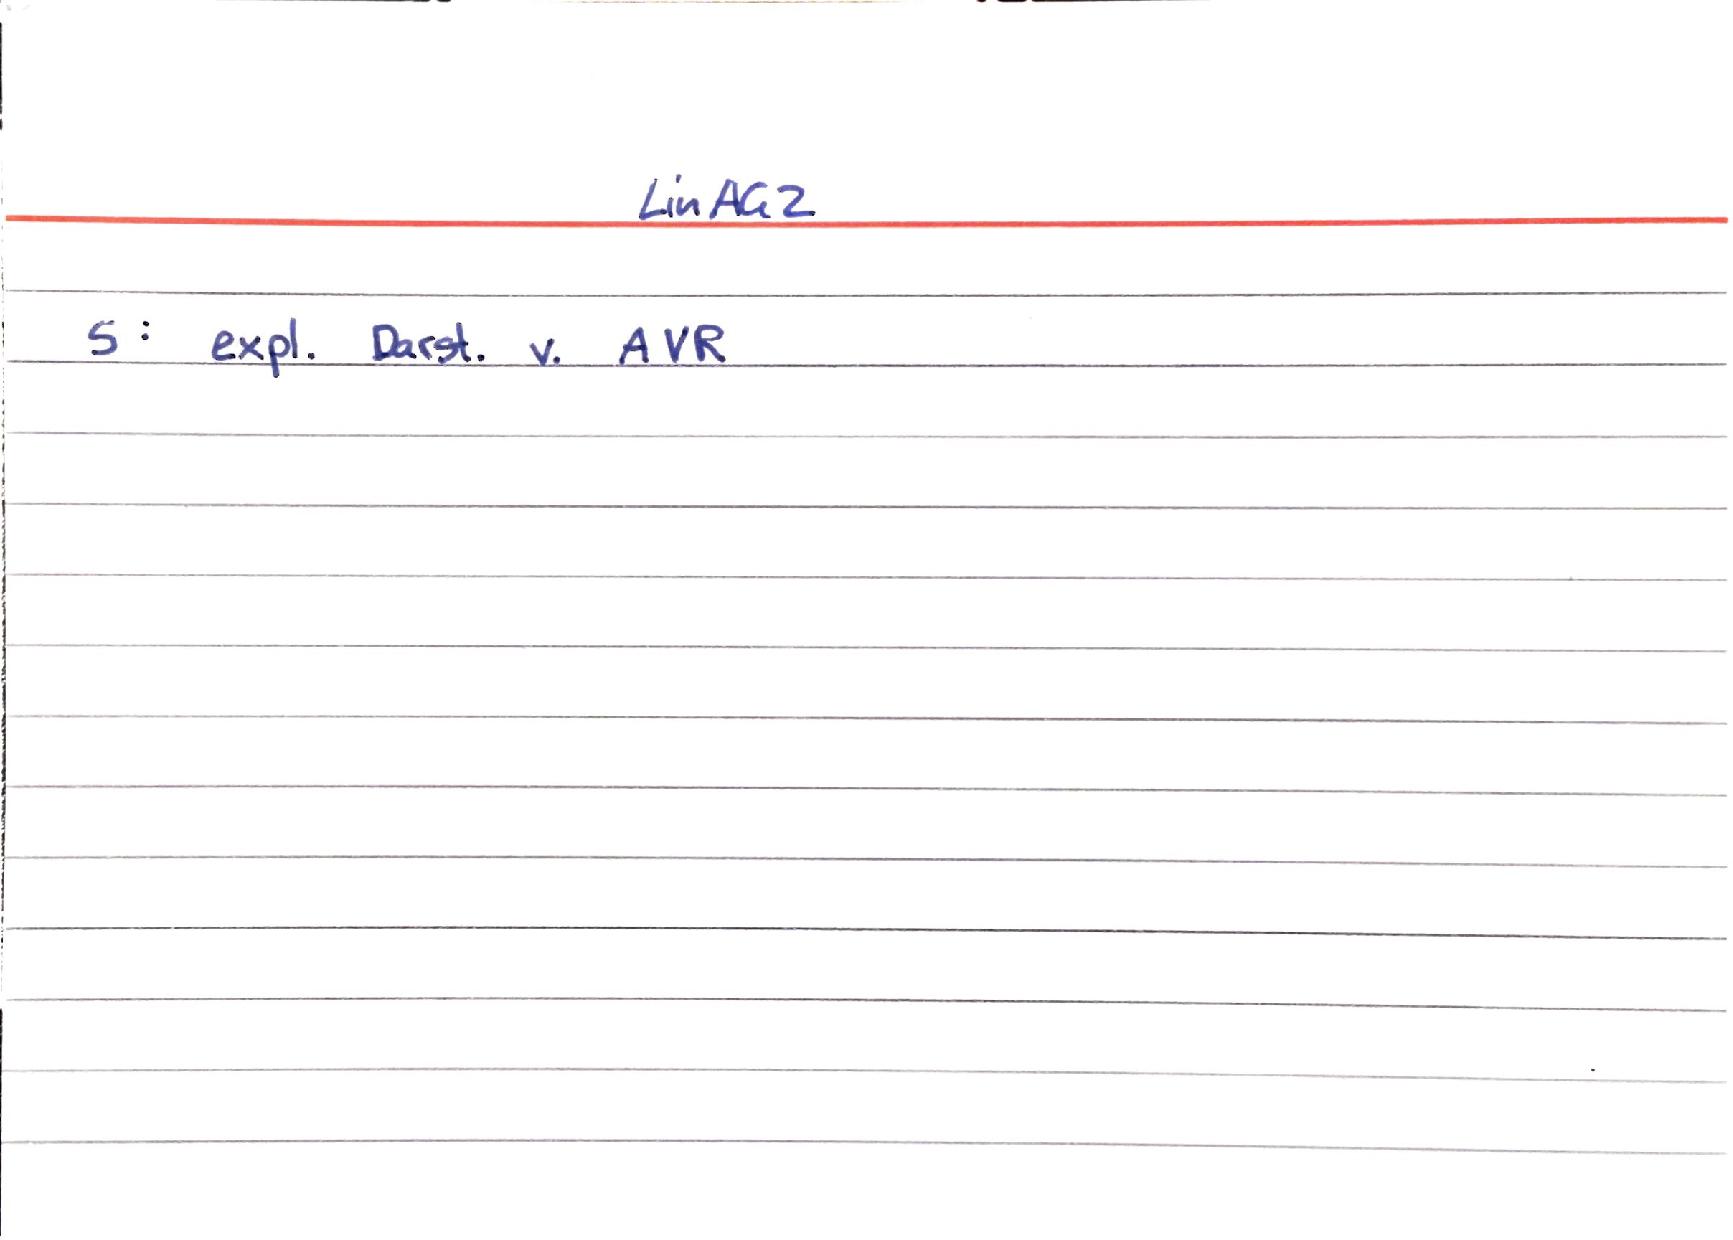 LinAG2
S: expl. Darst. v. AVR